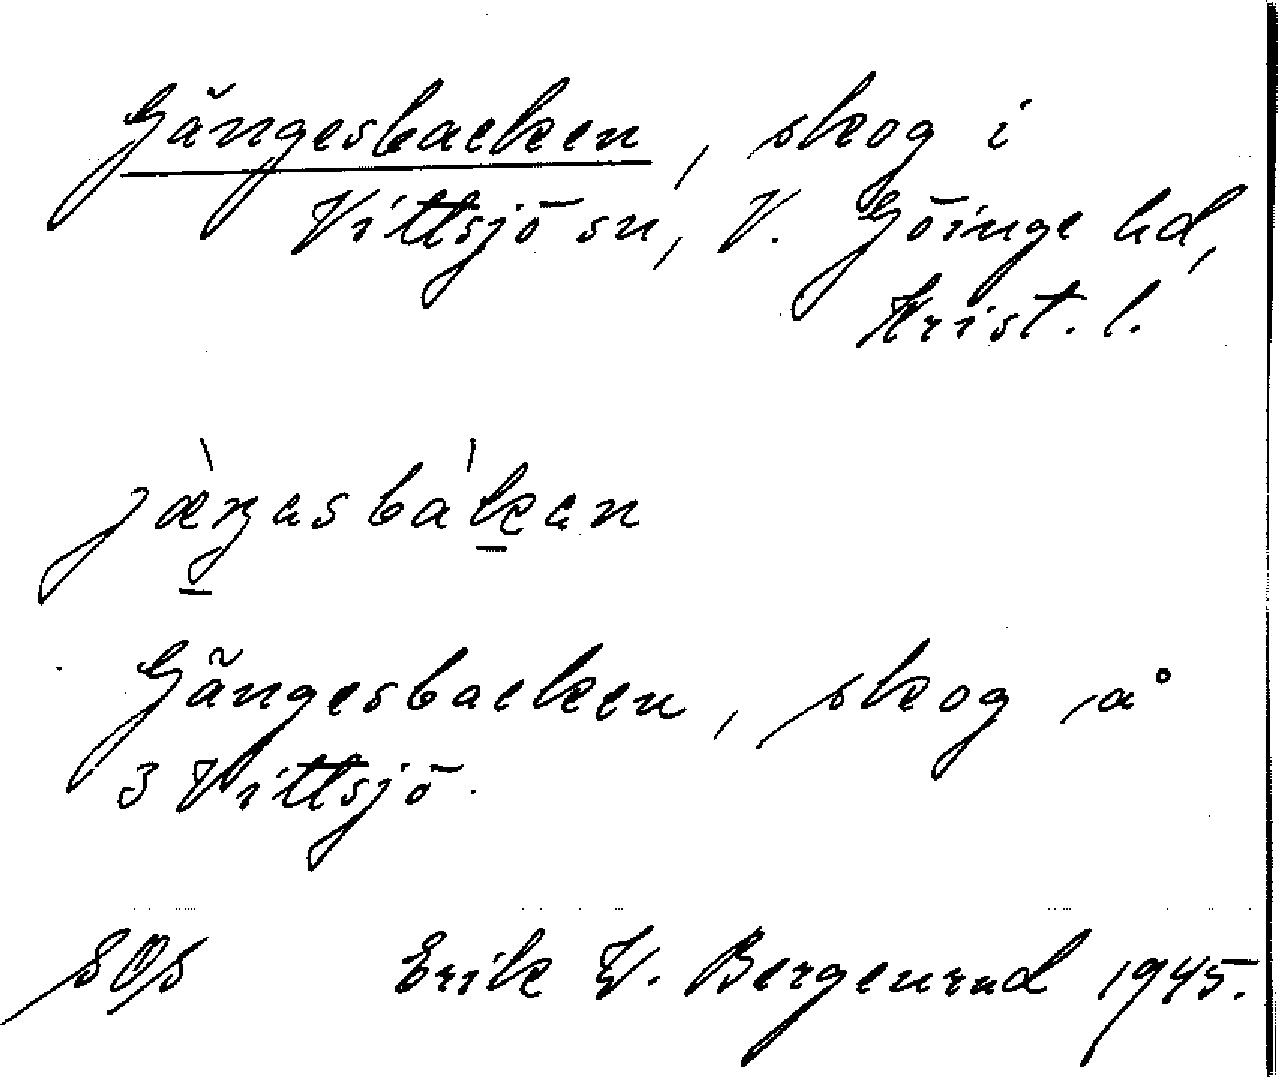 Gängesbacken, skog i
Vittsjö sn, V. Göinge hd,
Krist. l.
jæ̀ŋasbákan
Gängesbacken, skog å
3 Vittsjö.
Erik W. Bergenrud 1945.